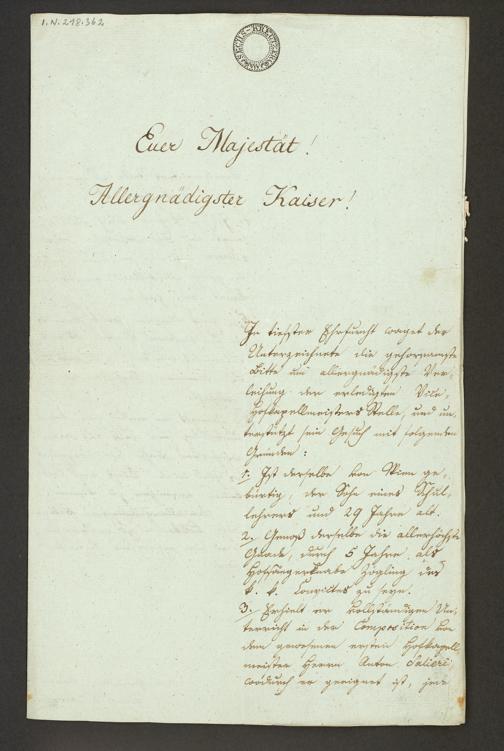 I.N. 248.362
SECHS-KREUTZER
Euer Majestät!
Allergnädigster Kaiser!
In tiefster Ehrfurcht waget der
Unterzeichnete die gehorsamste
Bitte um allergnädigste Ver-
leihung der erledigten Vice-
Hofkapellmeisters Stelle, und un-
terstützt sein Gesuch mit folgenden
Gründen:
1. Ist derselbe von Wien ge-
bürtig, der Sohn eines Schul-
lehrers und 29 Jahre alt.
2. Genoß derselbe die allerhöchste
Gnade, durch 5 Jahre als
Hofsängerknabe Zögling des
k. k. Convictes zu seyn.
3. Erhielt er vollständigen Un-
terricht in der Composition von
dem gewesenen ersten Hofkapell-
meister Herrn Anton Salieri,
wodurch er geeignet ist, jede